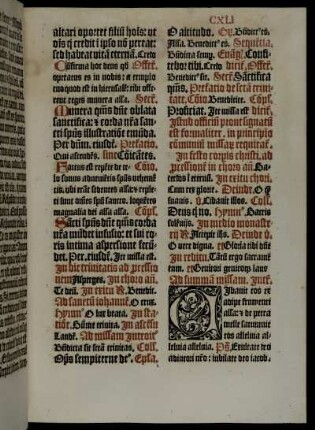 CXLI
altari oportet filiū hois: ut
oīs q̄ credit ī ipso nō pereat:
sed habeat vitā eternā. Credo
Cōfirma hoc deus qd Offert.
operatus es in nobis: a templo
tuo quod est in hierusalē: tibi offe-
rent reges munera alla. Secrē.
Munera quēs dñe oblata
sanctifica: ⁊ corda nr̄a san-
cti spūs illustratiōe emūda.
Per dñm. eiusdē. Prefatio.
Qui ascendēs. sine Cōicātes.
Factus est repēte de ce- Cōio.
lo sonus advenientis spūs vehemē-
tis. ubi erāt sedentes alla: ⁊ reple-
ti sunt omēs spū sancto. loquētes
magnalia dei alla alla. Cōpl.
Sancti spūs dñe quēs corda
nr̄a mūdet infusio: et sui ro-
ris intima aspersione fecū-
det. Per. eiusdē. Ite missa est.
In die trinitatis ad pressio-
nem Asperges. In choro añ.
Te deū. In reditu R. Benedic.
Ad sanctū iohannē. O crux.
Hymn⁹ O lux beata. In sta-
tiōe. Salue trinita. In ascēsu
Laudes. Ad missam Introit⁹
Bndicta sit sctā trinitas. Coll.
Oīps sempiterne de⁹. Epla.
O altitudo. Gr. Bndict⁹ es.
Alla. Benedict⁹ es. Sequētia.
Bndicta semp. Euāg. Confi-
tebor tibi. Credo dicit. Offert.
Benedict⁹ sit. Secrē. Sāctifica
quēs. Prefatio de sctā trini-
tate. Cōio. Benedicite. Cōpl.
Proficiat. Ite missa est dicit.
Istud officiū pronūc signatū
est formaliter. in principio
cōmuniū missarū requirat.
In festo corpis christi, ad
pressionē in choro añ Sa-
cerdos īeternū. In exitu
Cum rex glorie. Deinde. O q̄
suauis. v. Cibauit illos. Coll.
Deus q̄ no. Hymn⁹ Sacris
solēniis. In medio monaste-
rii R. Accepit ihs. Deinde. añ
O vere digna. et Gloria tibi dñe
In reditu. Tātū ergo sacramē
tum. et Genitori genitoqȝ laus
Ad summā missam. Jntr.
Cibauit eos ex
adipe frumenti
alla: ⁊ de petra
melle saturauit
eos alleluia al-
leluia alleluia. Ps. Exultate deo
adiutori nr̄o: iubilate deo iacob.